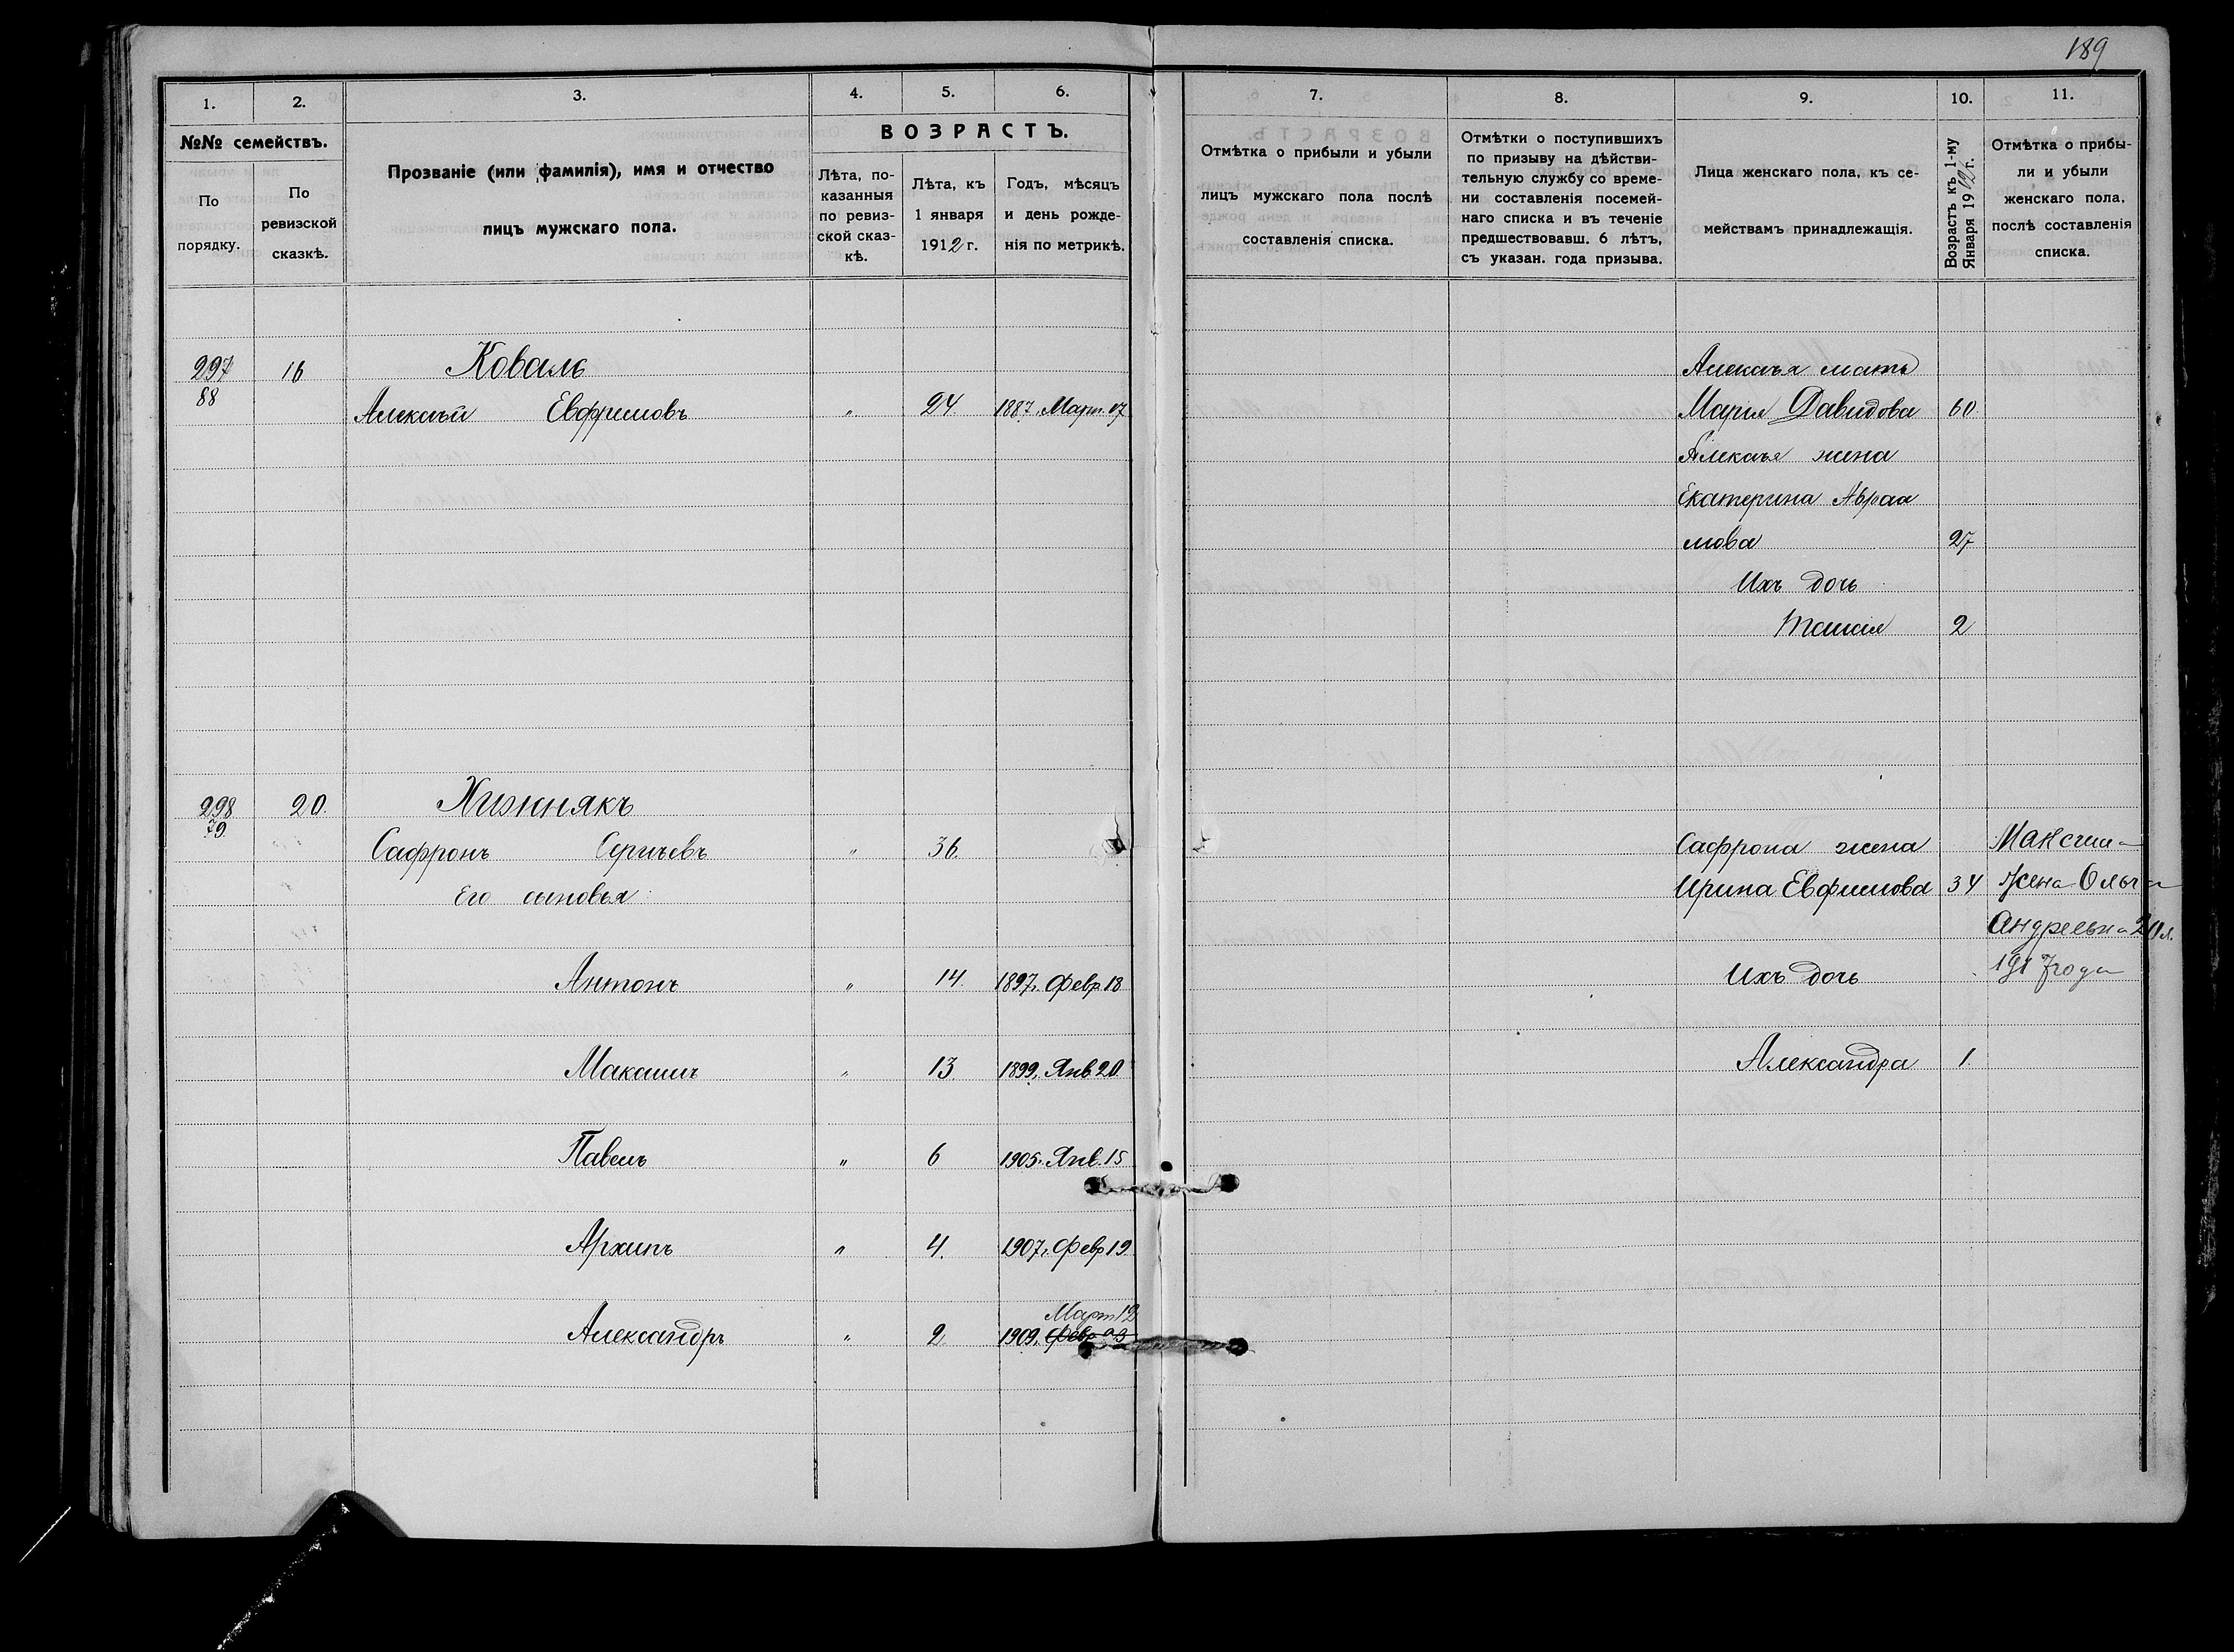 189
1. 2. 3. 4. 5. 6. 7. 8. 9. 10. 11.
№№ семействъ.
По порядку.
По ревизской сказкѣ.
Прозваніе (или фамилія), имя и отчество
лицъ мужскаго пола.
ВОЗРАСТЪ.
Лѣта, по-
казанныя
по ревиз-
ской сказ-
кѣ.
Лѣта, къ
1 января
1912 г.
Годъ, мѣсяцъ
и день рожде-
нія по метрикѣ.
Отмѣтка о прибыли и убыли
лицъ мужскаго пола послѣ
составленія списка.
Отмѣтки о поступившихъ
по призыву на дѣйстви-
тельную службу со време-
ни составленія посемей-
наго списка и въ теченіе
предшествовавш. 6 лѣтъ,
съ указан. года призыва.
Лица женскаго пола, къ се-
мействамъ принадлежащія.
Возрастъ къ 1-му
Января 1912 г.
Отмѣтка о прибы-
ли и убыли
женскаго пола,
послѣ составленія
списка.
297 16 Коваль Алексѣя мать
88
Алексѣй Евфримовъ " 24 1887. Март. 17 Марія Давидова 60
Алексѣя жена
Екатерина Авраа
мова 27
Ихъ дочь
2
298 20. Хижнякъ
79
Сафронъ Сергѣевъ " 36. Сафрона жена Максима
Его сыновья: Ирина Евфимова 34 Жена Ольга
Андреевна 20 л.
Антонъ " 14. 1897. Февр 18 Ихъ дочь 1917 года
Максимъ " 13 1899. Янв. 20 Александра 1.
Павелъ " 6 1905. Янв. 15
Архипъ " 4. 1907. Февр 19
Март 12
Александръ " 2 1909. Февр